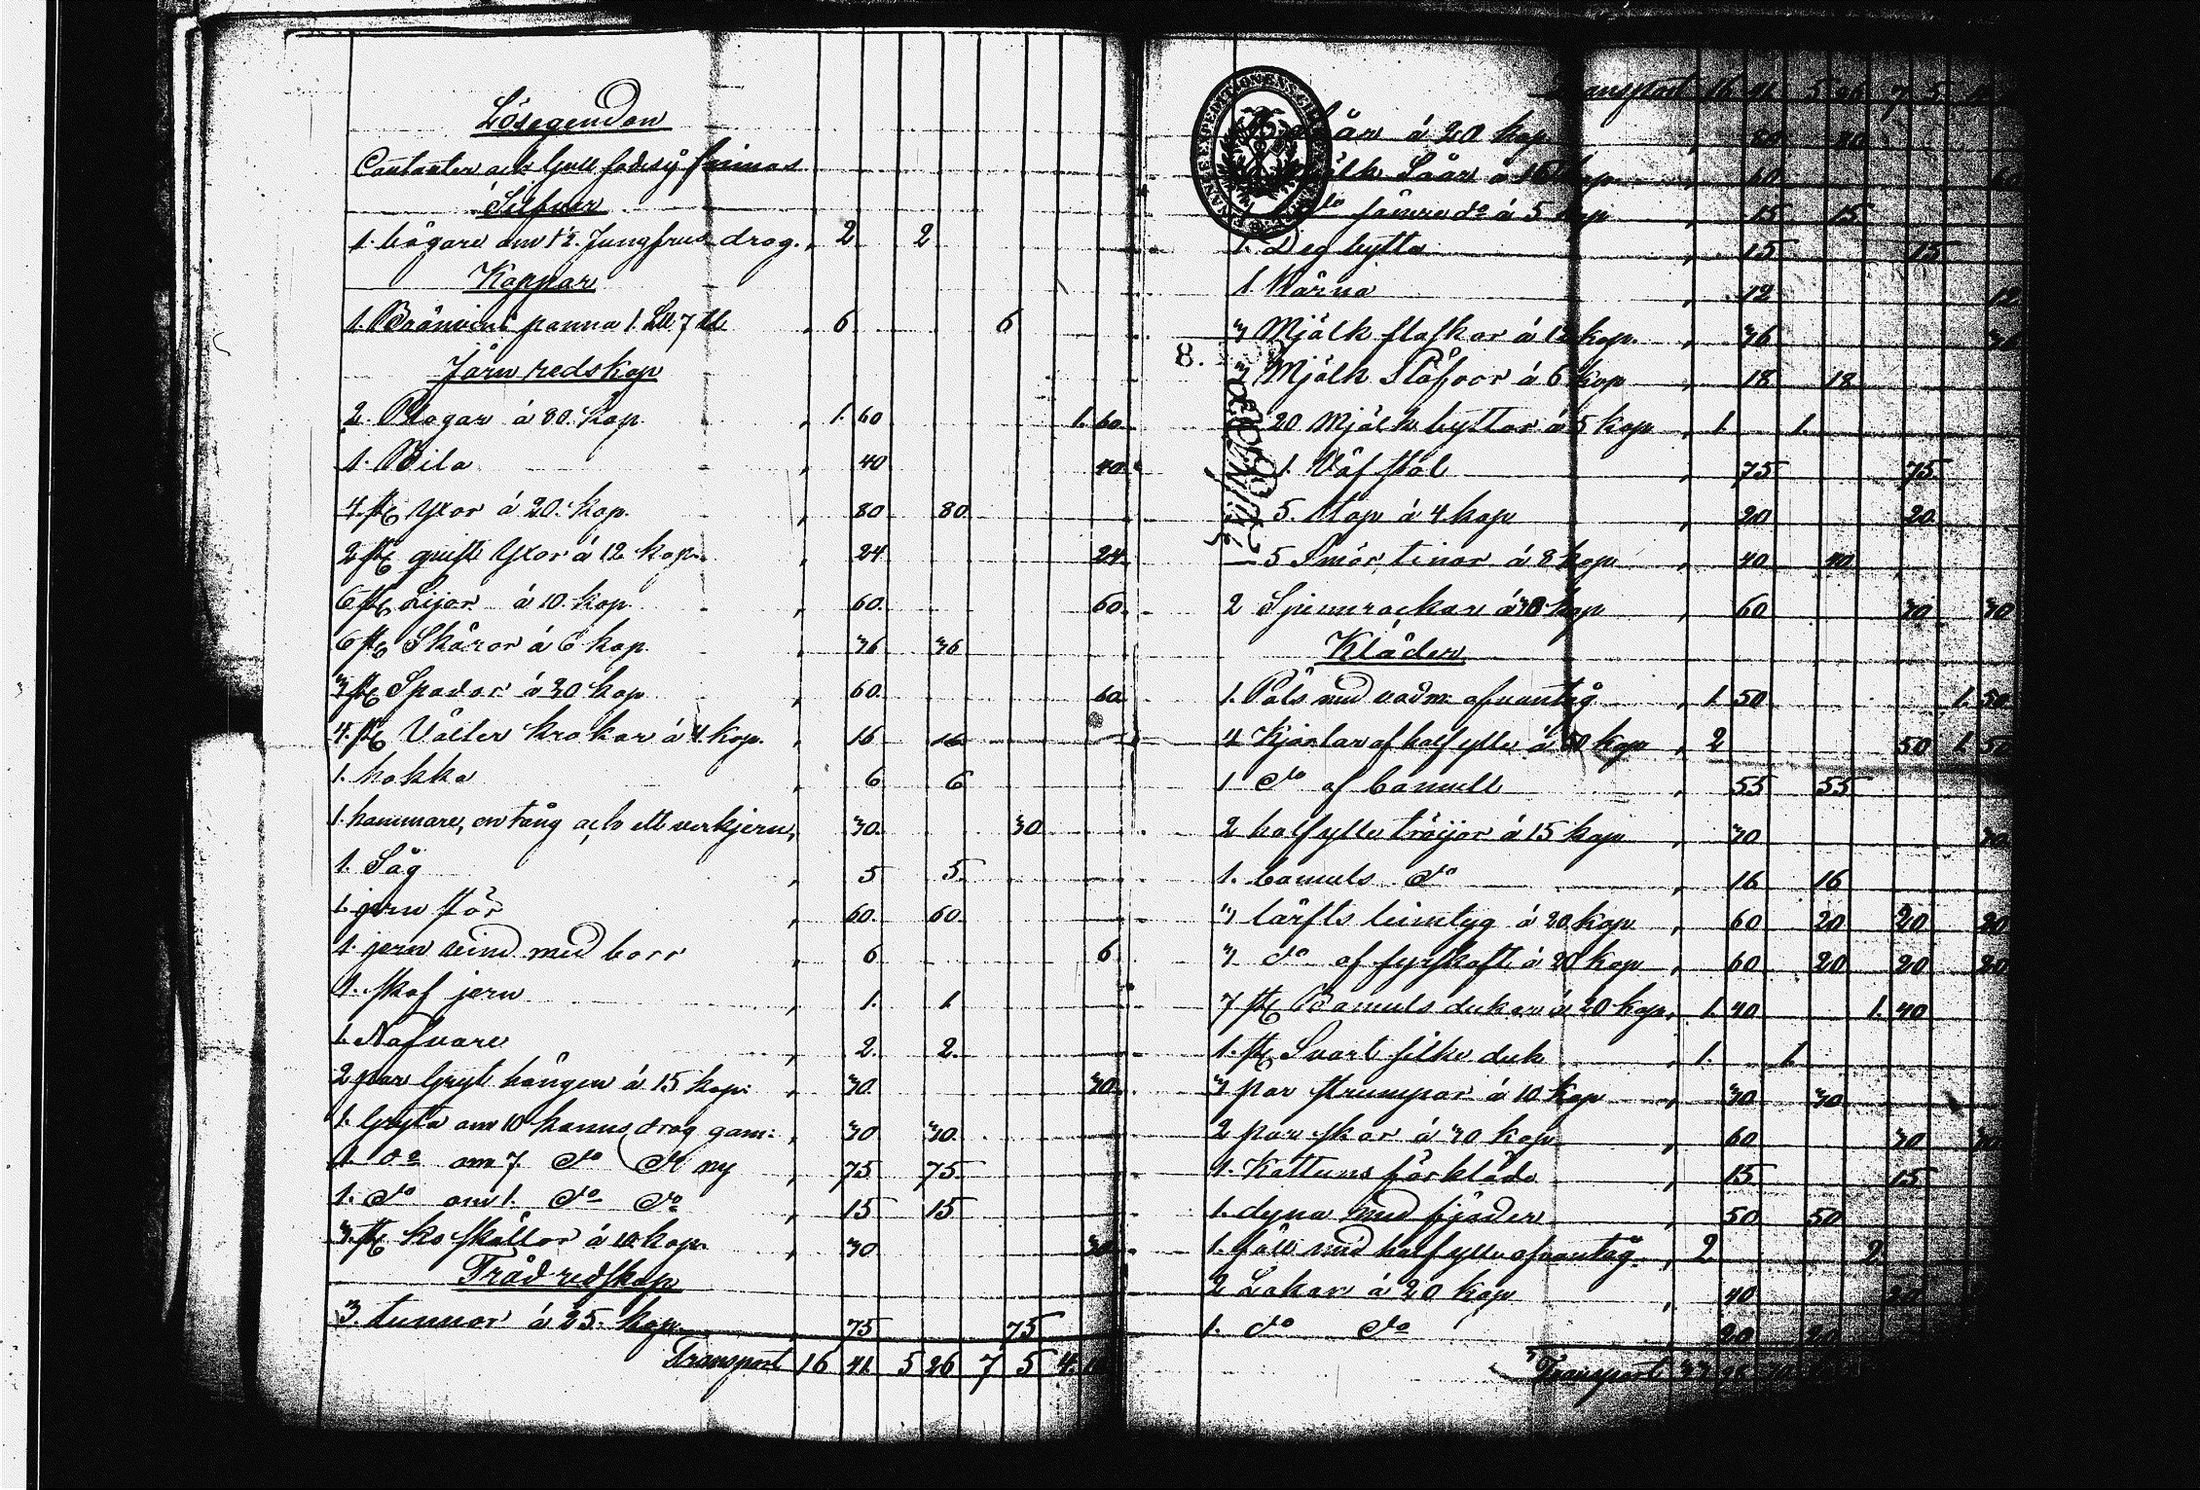 Lösegendom
Contanter och Gull fads ej finnas
Silfver
1. bägare om 1½ Jungfrus drag. 2 2
Koppar
1. Bränvins panna 1. L℔ 7 ℔ 6 6
Järn redskap
2. Plogar á 80. kop 1. 60 1. 60
1. Bila 40 40
4. st Yxor á 20. kop. 80 80
2 st quist Yxor á 12 kop. 24 24
6 st Lijor á 10. kop 60. 60.
6 st Skäror á 6 kop. 36 36
3 st Spador á 20 kop 60. 60
4. st Välter krokar á 4. kop. 16 16
1. hakka 6 6
1. hammare, en tång och ett verkjern, 30. 30
1. Såg 5 5.
1. jern stör 60. 60.
1. jern vind med borr 6 6
1. skaf jern 1. 1
1. Nafvare 2. 2.
2 par Gryt hängen á 15 kop: 30. 30.
1. Gryta om 10 kanns drag gam: 30 30.
1. do om 7. do do ny 75 75
1. do om 1. do do 15 15
3. st ko skällor á 10. kop. 30 30
Träd redskap
3. tunnor á 25. kop. 75 75
Transport 16 41. 5 26 7 5 4.
Transport 16 41. 5 26 7 5.
Såar á 20 kop 80 80
Såar á 15 kop 60 60
do sämre do á 5 kop 15 15
1. Deg bytta 15 15
1 Kärna 12 12
3 Mjölk flaskor á 12 kop. 36
8.
3 Mjölk Stäfvor á 6 kop 18 18
20 Mjölk byttor á 5 kop 1. 1.
1. Väf stol 75 75
5. Stop á 4 kop 20 20
5 Smör tinor á 8 kop 40 40
2 Spinnrockar á 30 kop 60 30 30
Kläder
1. Päls med vadm: afvantåg 1. 50 1. 50
4 Kjortlar af halfylle á 50 kop 2 50 1. 50
1 do af bomull 55 55
2 halfylle tröijor á 15 kop 30 30
1. bomuls do 16 16
3 lärfts linntyg á 20 kop 60 20 20 20
3 do af fyrskaft á 20 kop 60 20 20 20
7 st Bomuls dukar á 20 kop. 1. 40 1. 40
1. st Svart silke duk 1. 1.
3 par strumpor á 10 kop 30 30
2 par skor á 30 kop. 60 30 30
1. Kattuns förkläde 15 15
1. dyna med fjäder 50 50
1. fäll med halfylle afvantåg. 2 2
2 Lakan á 20 kop 40 20
1. do do 20 20
Transport 33